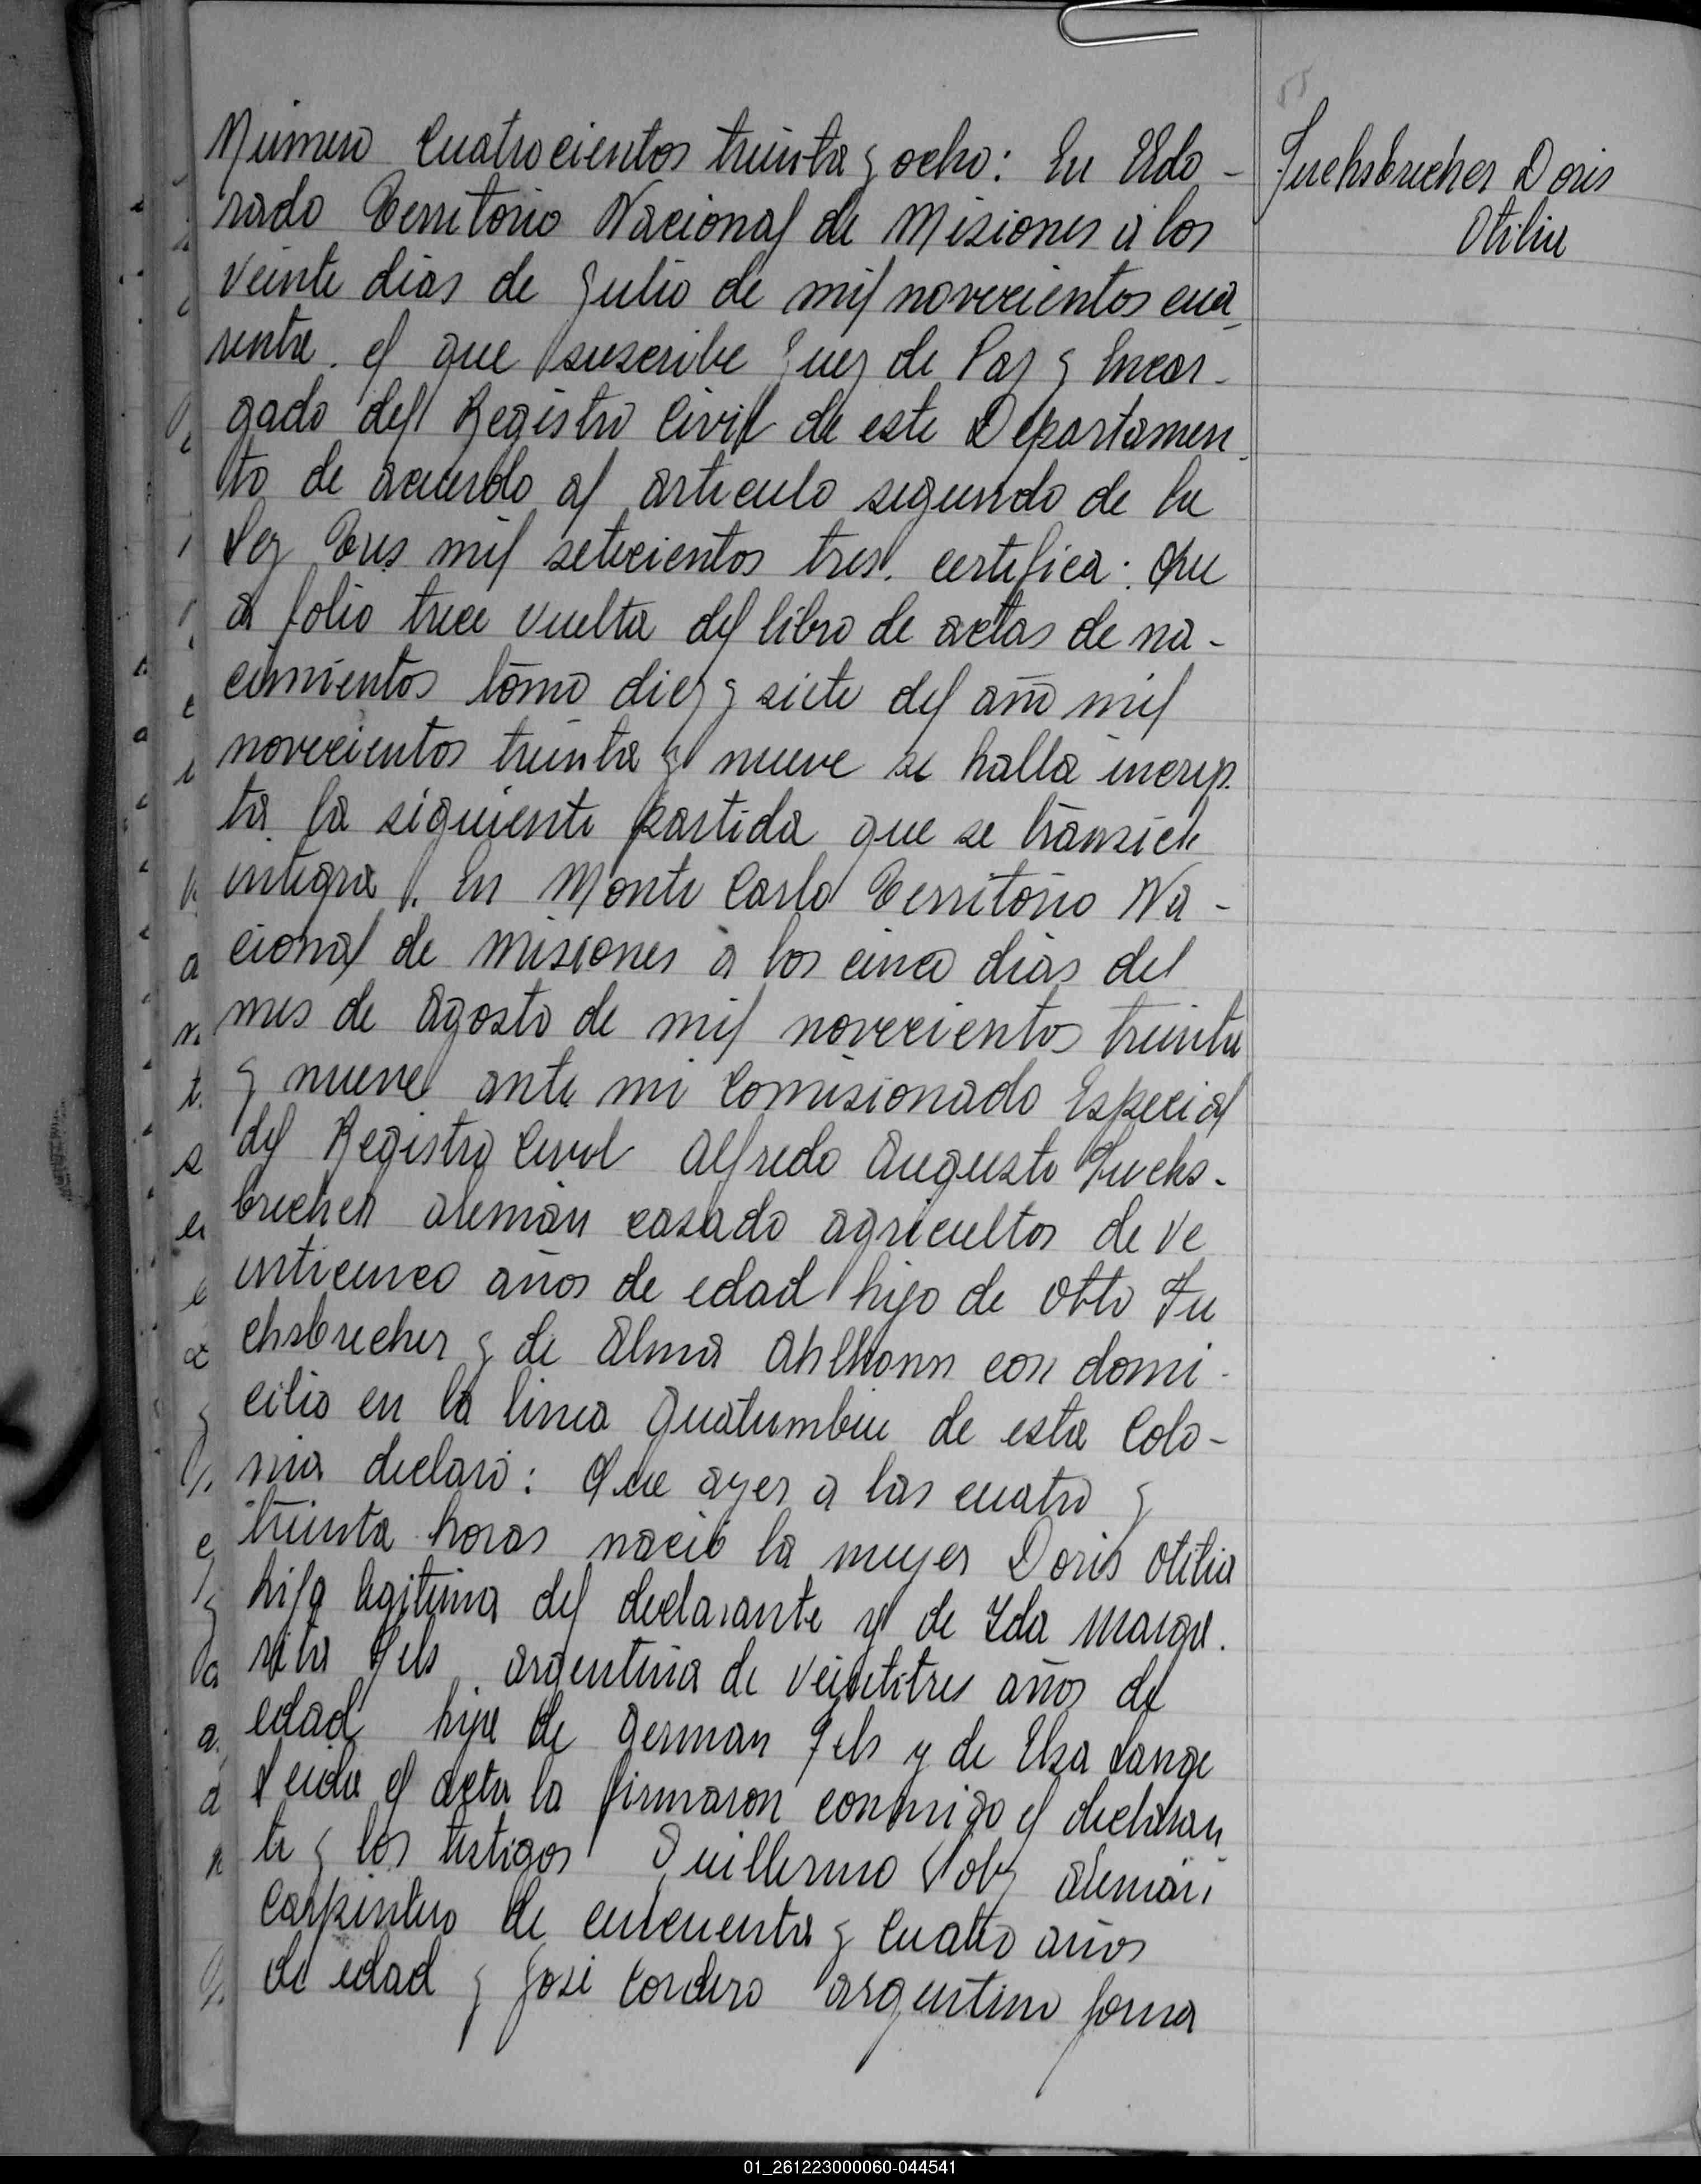 Número Cuatrocientos treinta y ocho: En Eldo-
rado Territorio Nacional de Misiones a los
veinte dias de Julio de mil novecientos cua-
renta. el que suscribe Juez de Paz y Encar-
gado del Registro Civil de este Departamen-
to de acuerdo al articulo segundo de la
Ley Tres mil setecientos tres. certifica: Que
a folio trece vuelta del libro de actas de na-
cimientos tomo diez y siete del año mil
novecientos treinta y nueve se halla inscrip-
ta la siguiente partida que se
integra. En Monte Carlo Territorio Na-
cional de Misiones a los cinco dias del
mes de Agosto de mil novecientos treinta
y nueve ante mi Comisionado Especial
del Registro Civil Alfredo Augusto Fuchs-
brucher alemán casado agricultor de ve
inticinco años de edad hijo de Otto Fu
chsbrucher y de Alma con domi-
cilio en la linea Guatumbiu de esta Colo-
nia declaró: Que ayer a las cuatro y
treinta horas nació la mujer Doris Otilia
hija legitima del declarante y de Ida Marga-
rita Gels argentina de veintitres años de
edad hija de German Gels y de Elsa Lange
Leida el acta la firmaron conmigo el declaran
te y los testigos Guillermo alemán
Carpintero de cincuenta y cuatro años
de edad y José Cordero argentino jorna
Fuchsbrucher Doris
Otilia
01_261223000060-044541